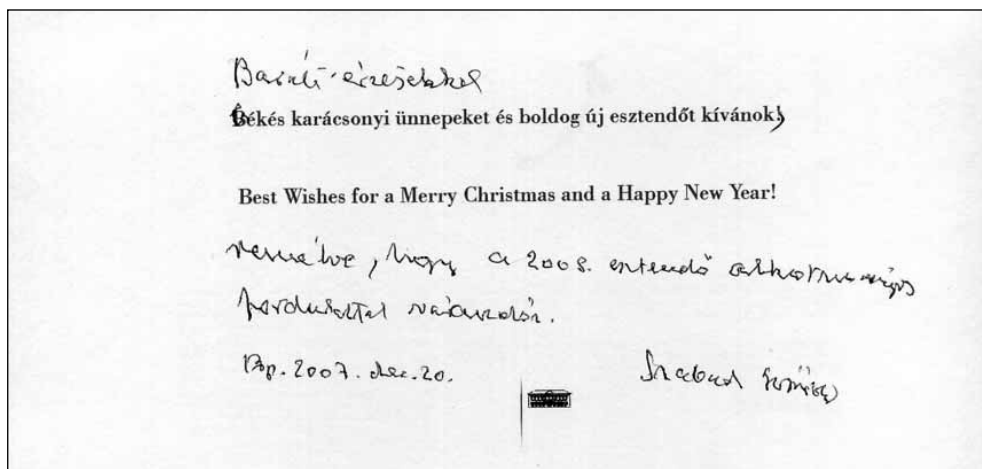 Baráti érzésekkel
békés karácsonyi ünnepeket és boldog új esztendőt kívánok,
Best Wishes for a Merry Christmas and a Happy New Year!
remélve, hogy a 2008. esztendő alkotmányos
fordulattal
Bp. 2007. dec. 20.
Szabad György